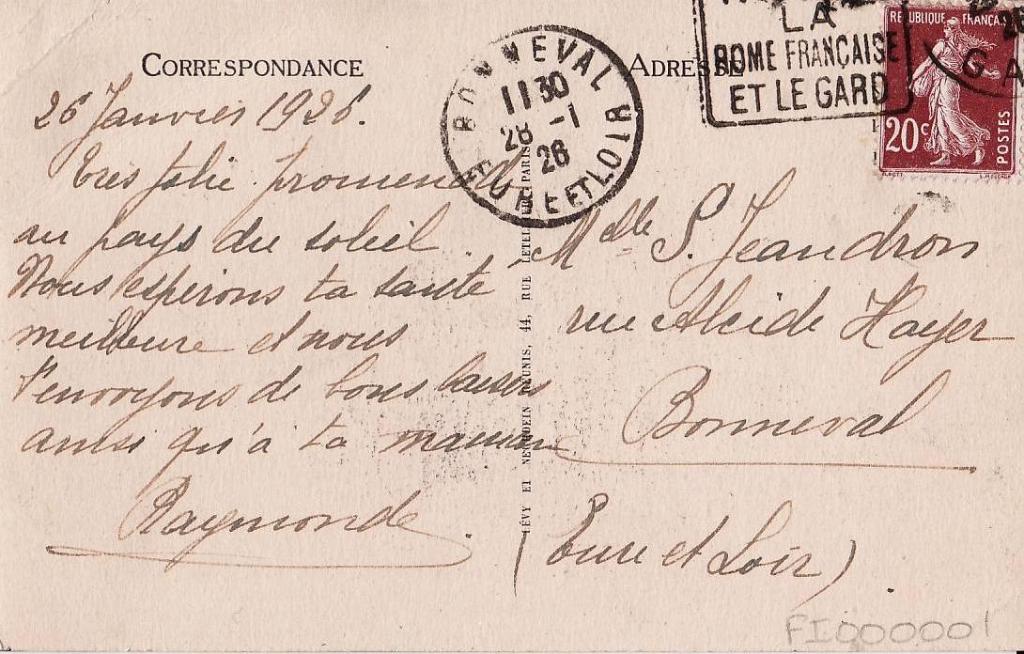 CORRESPONDANCE
26 Janvier 1926.
Très jolie promenade
au pays du soleil.
Nous espérons ta santé
meilleure et nous
t'envoyons de bons baisers
ainsi qu'à ta maman
Raymonde.
BONNEVAL
11 30
26 -1
26
EURE ET LOIR
LÉVY ET NEURDEIN RÉUNIS, 44, RUE LETELLIER, PARIS
ADRESSE
LA
ROME FRANÇAISE
ET LE GARD
RÉPUBLIQUE FRANÇAISE
20c
POSTES
Melle S. Jeandron
rue Alcide Hayer
Bonneval
(Eure et Loir)
FI000001